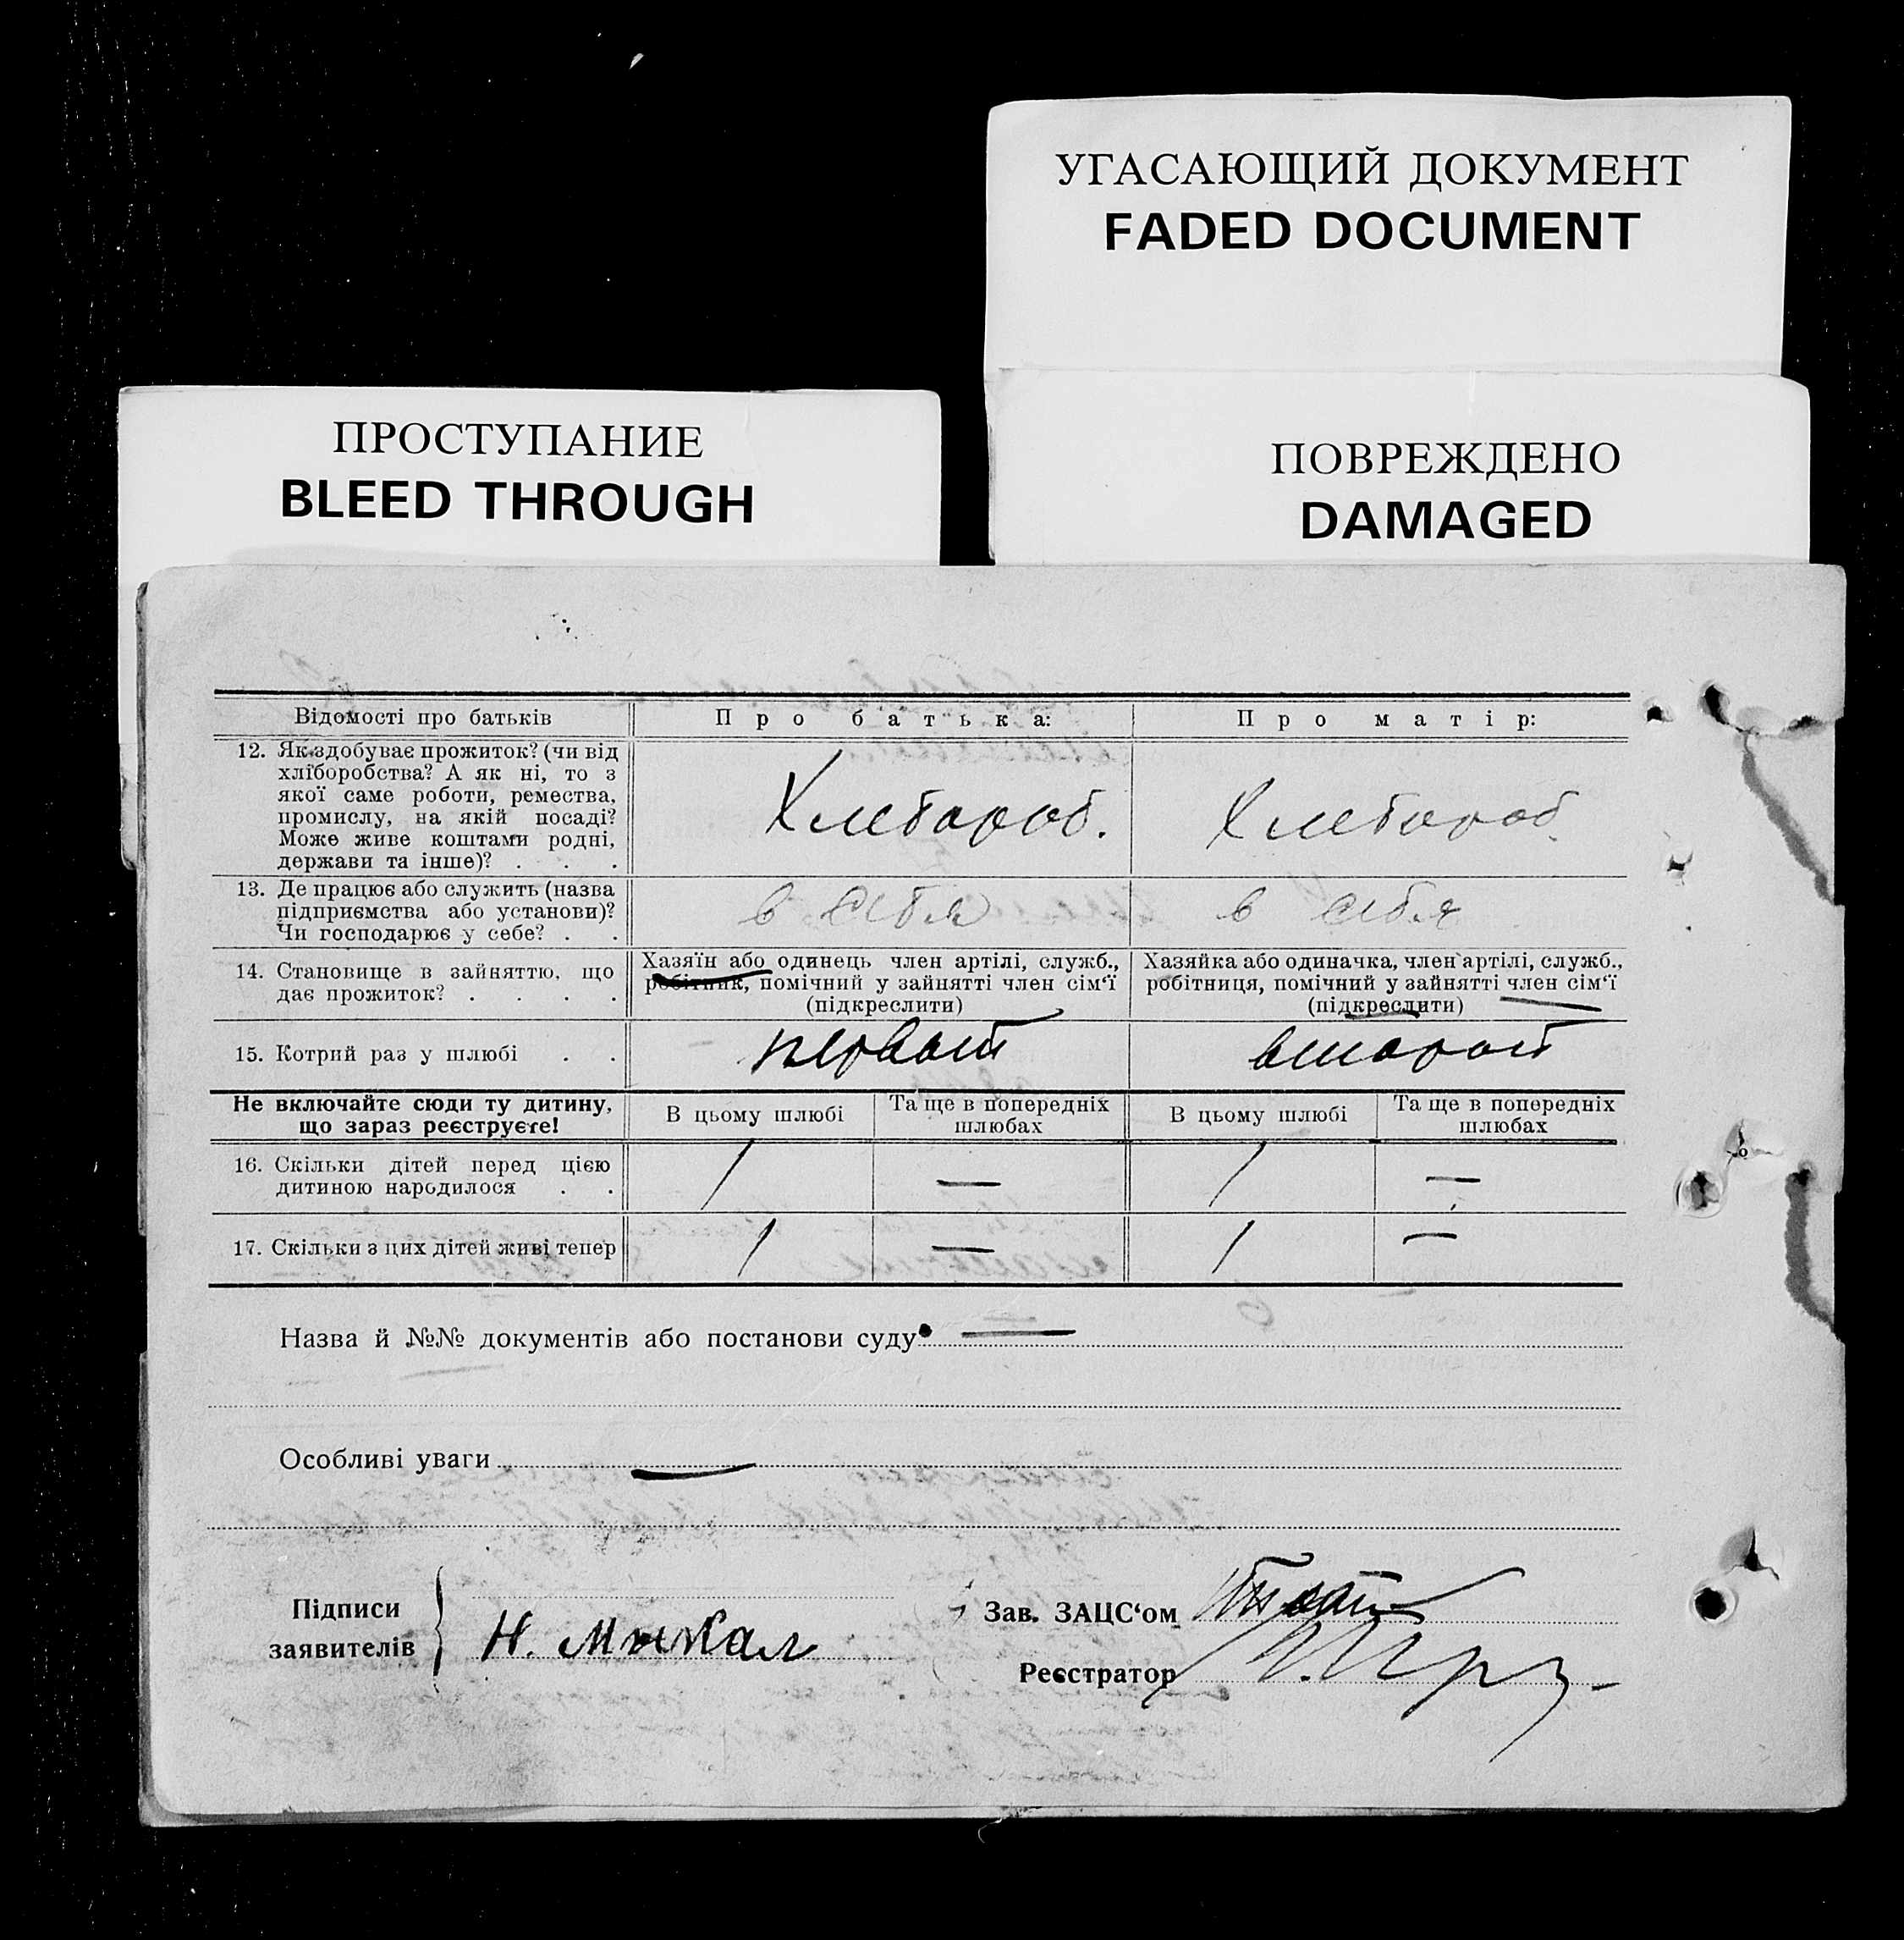 УГАСАЮЩИЙ ДОКУМЕНТ
FADED DOCUMENT
ПРОСТУПАНИЕ
BLEED THROUGH
ПОВРЕЖДЕНО
DAMAGED
Відомості про батьків
Про батька:
Про матір:
12. Як здобуває прожиток? (чи від
хліборобства? А як ні, то з
якої саме роботи, ремества,
промислу, на якій посаді?
Може живе коштами родні,
держави та інше)? . . .
Хлебороб.
Хлебороб.
13. Де працює або служить (назва
підприємства або установи)?
Чи господарює у себе? . .
в себя
в себя
14. Становище в зайняттю, що
дає прожиток? . . . .
Хазяїн або одинець член артілі, служб.,
робітник, помічний у зайнятті член сім‘ї
(підкреслити)
Хазяйка або одиначка, член артілі, служб.,
робітниця, помічний у зайнятті член сім‘ї
(підкреслити)
15. Котрий раз у шлюбі . .
первый
второй
Не включайте сюди ту дитину,
що зараз реєструєте!
В цьому шлюбі
Та ще в попередніх
шлюбах
В цьому шлюбі
Та ще в попередніх
шлюбах
16. Скільки дітей перед цією
дитиною народилося . .
1 — 1 —
17. Скільки з цих дітей живі тепер
1 — 1 —
Назва й №№ документів або постанови суду —
Особливі уваги —
Підписи
заявителів
Н.
Зав. ЗАЦС‘ом
Реєстратор